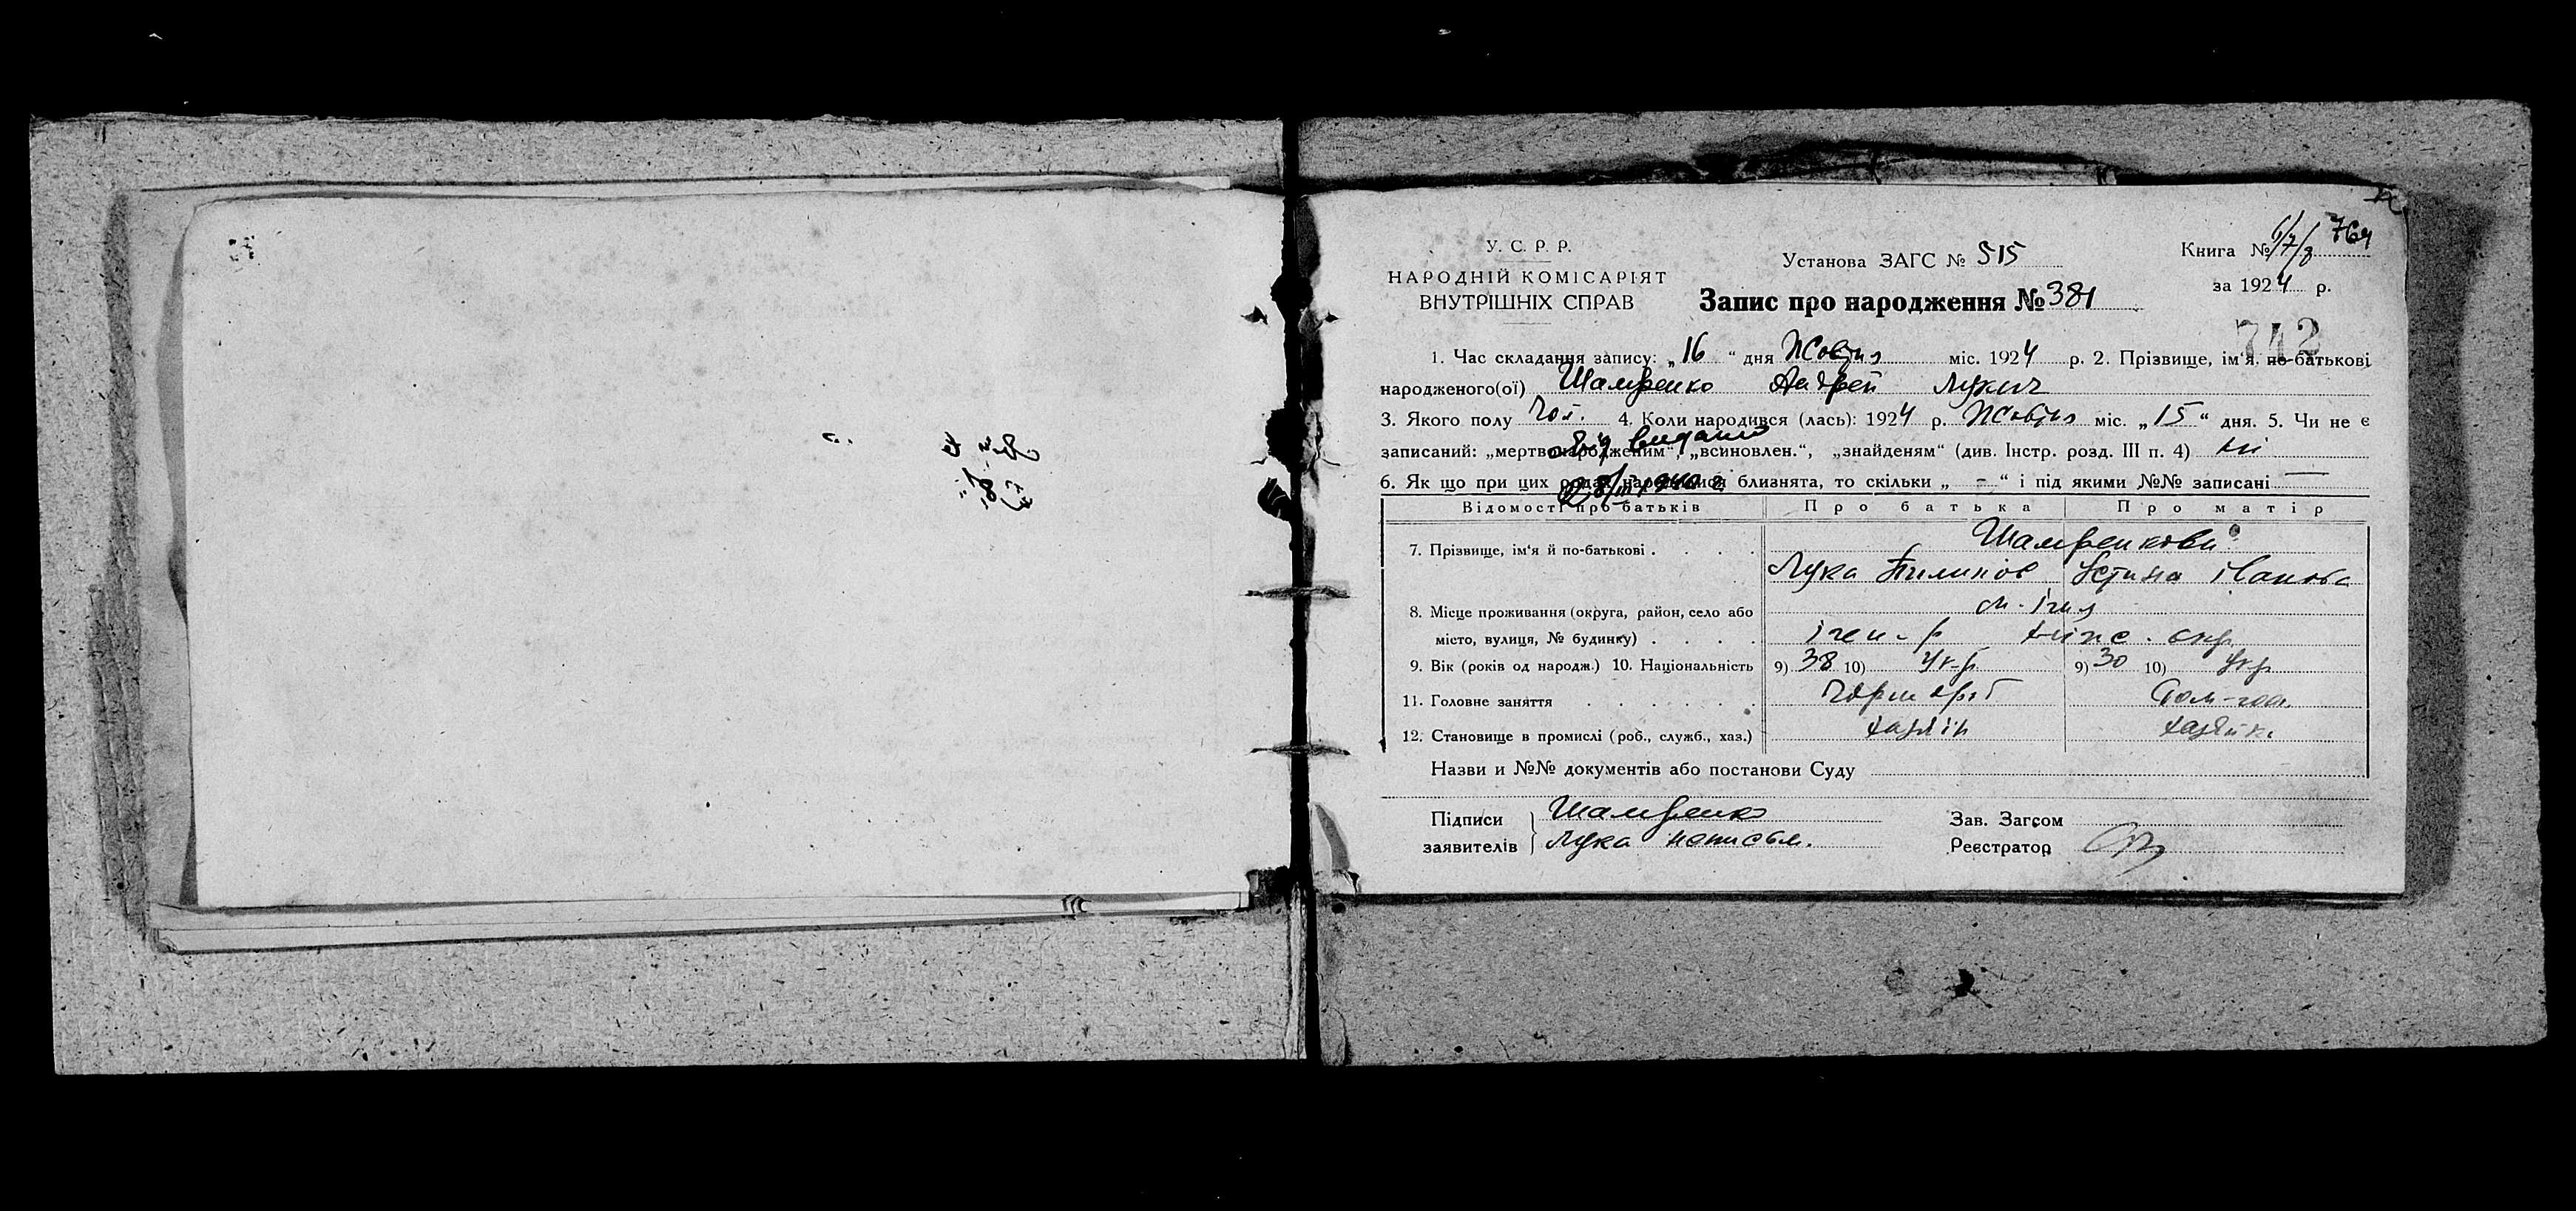 У. С. Р. Р.
НАРОДНІЙ КОМІСАРІЯТ
ВНУТРІШНІХ СПРАВ
Установа ЗАГС № 515
Запис про народження № 381
Книга № 6/7/8 764
за 1924 р.
742
1. Час складання запису: „16“ дня Жовтня міс. 1924 р. 2. Прізвище, ім'я, по-батькові
народженого(ої) Шамренко Андрей Лукич
3. Якого полу Чол. 4. Коли народився (лась): 1924 р. Жовтня міс. „15“ дня. 5. Чи не є
записаний: „мертвонародженим“, „всиновлен.“, „знайденям“ (див. Інстр. розд. III п. 4) ні
видано
6. Як що при цих родах народилися близнята, то скільки „ - “ і під якими №№ записані —
Відомості про батьків Про батька Про матір
7. Прізвище, ім'я й по-батькові Шамренкови
Лука Пилипов Устина Іванова
8. Місце проживання (округа, район, село або
місто, вулиця, № будинку)
9. Вік (років од народж.) 10. Національність 9) 38 10) Укр. 9) 30 10) Укр
11. Головне заняття
12. Становище в промислі (роб., служб., хаз.) хазяін хазяйк.
Назви и №№ документів або постанови Суду
Підписи Шамренко
заявителів Лука
Зав. Загсом
Реєстратор